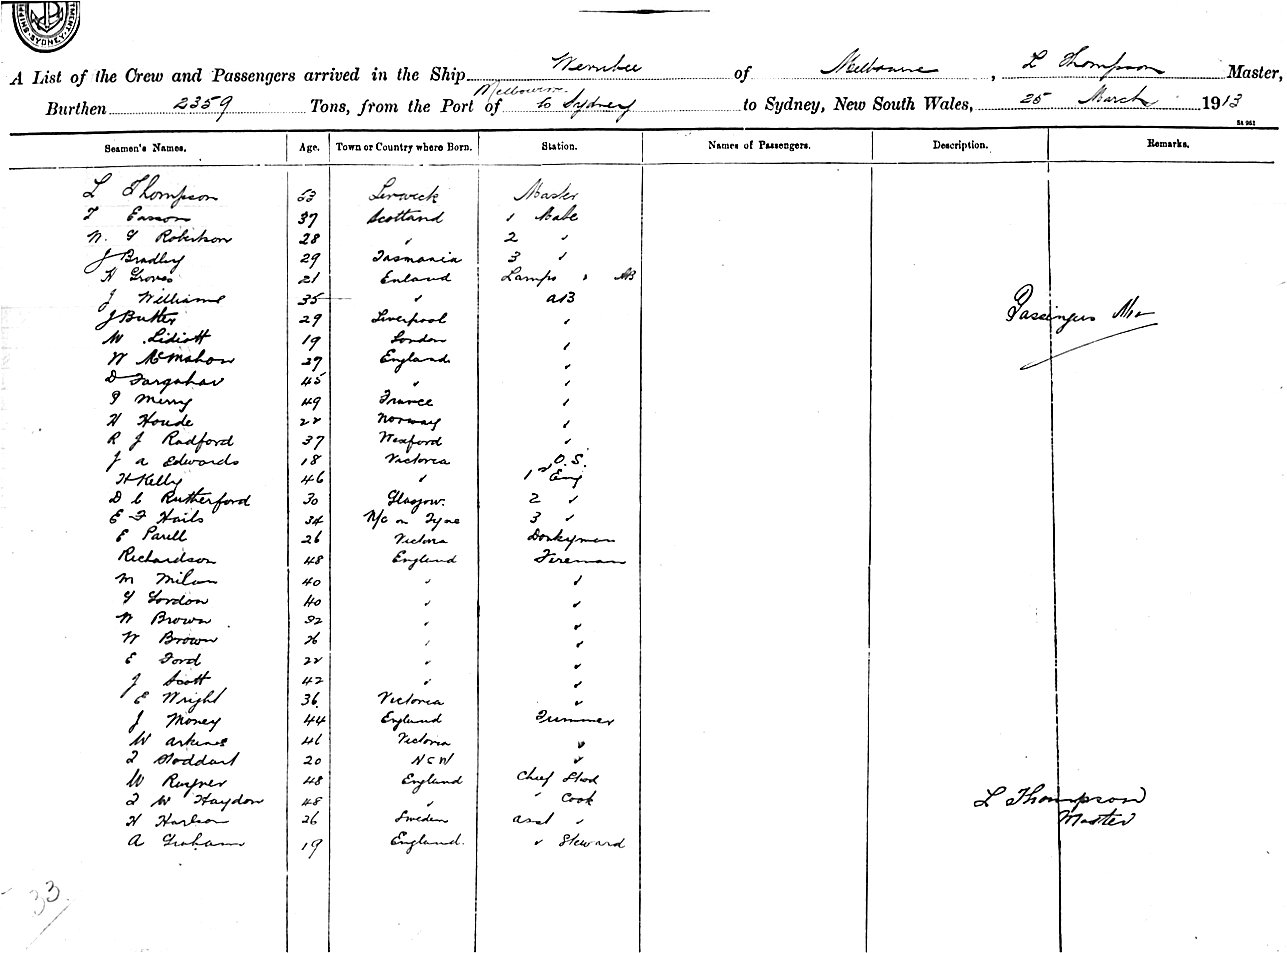 SYDNEY
A List of the Crew and Passengers arrived in the Ship Werribee of Melbourne, L Thompson Master,
Burthen 2359 Tons, from the Port of Melbourne to Sydney to Sydney, New South Wales, 25 March 1913
St 961
Seamen's Names. Age. Town or Country where Born. Station. Names of Passengers. Description. Remarks.
L Thompson 53 Lerwick Master
T Easson 37 Scotland 1 Mate
W. G Robertson 28 " 2 "
J Bradley 29 Tasmania 3 "
H Groves 21 Enland Lamps & AB
J Williams 35 " AB
J Butter 29 Liverpool "
Passengers Nil
W Lidiott 19 London "
W McMahon 27 England "
D Farquhar 45 " "
P Merry 49 France "
H Houde 22 Norway "
R J Radford 37 Wexford "
J A Edwards 18 Victoria O.S.
H Kelly 46 " 1st Eng
D C Rutherford 30 Glasgow. 2 "
E F Hails 34 N/C on Tyne 3 "
E Parell 26 Victoria Donkyman
Richardson 48 England Fireman
M Milan 40 " "
G Gordon 40 " "
W Brown 32 " "
W Brown 26 " "
E Ford 22 " "
J Scott 42 " "
E Wright 36 Victoria "
J Money 44 England Trimmer
W Arkines 46 Victoria "
T Stoddart 20 NSW "
W Rayner 48 England Chief Stwd
T W Haydon 48 " " Cook
L Thompson
H Harlson 26 Sweden asst "
Master
A Graham 19 England. " Steward
33